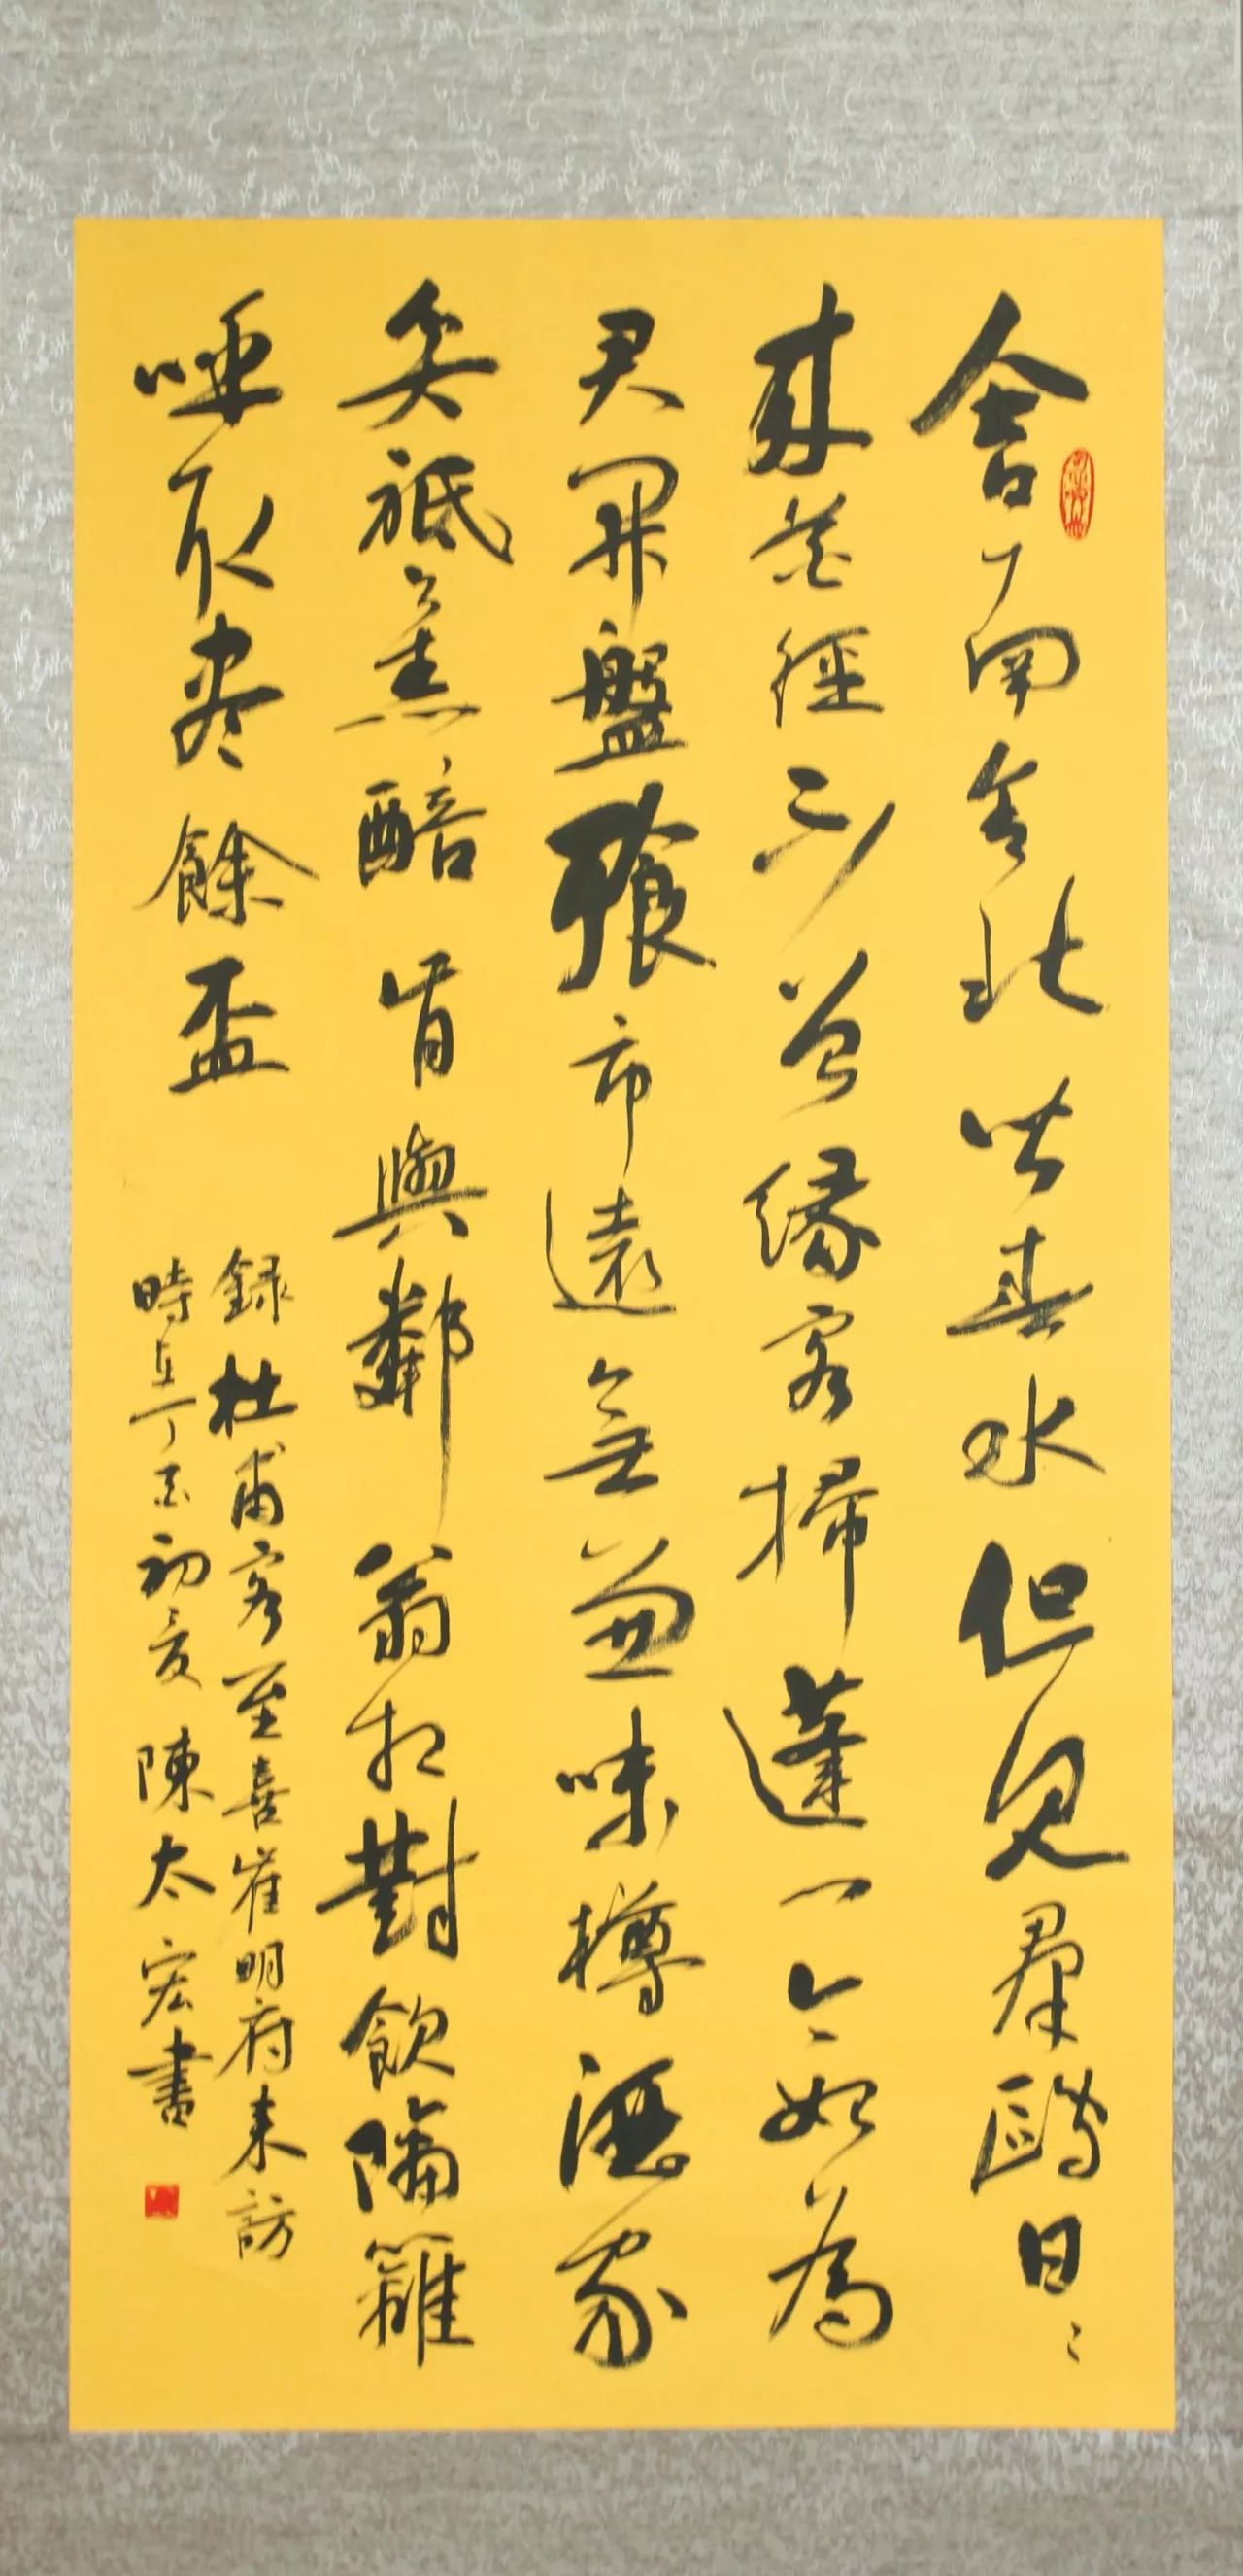 舍南舍北皆春水但見羣鷗日〻
來花徑不曾緣客掃蓬門今始為
君開盤飧市遠無兼味樽酒家
貧祇舊醅肯與鄰翁相對飲隔籬
呼取盡餘盃
録杜甫客至喜崔明府來訪
時在丁酉初夏陳太宏書